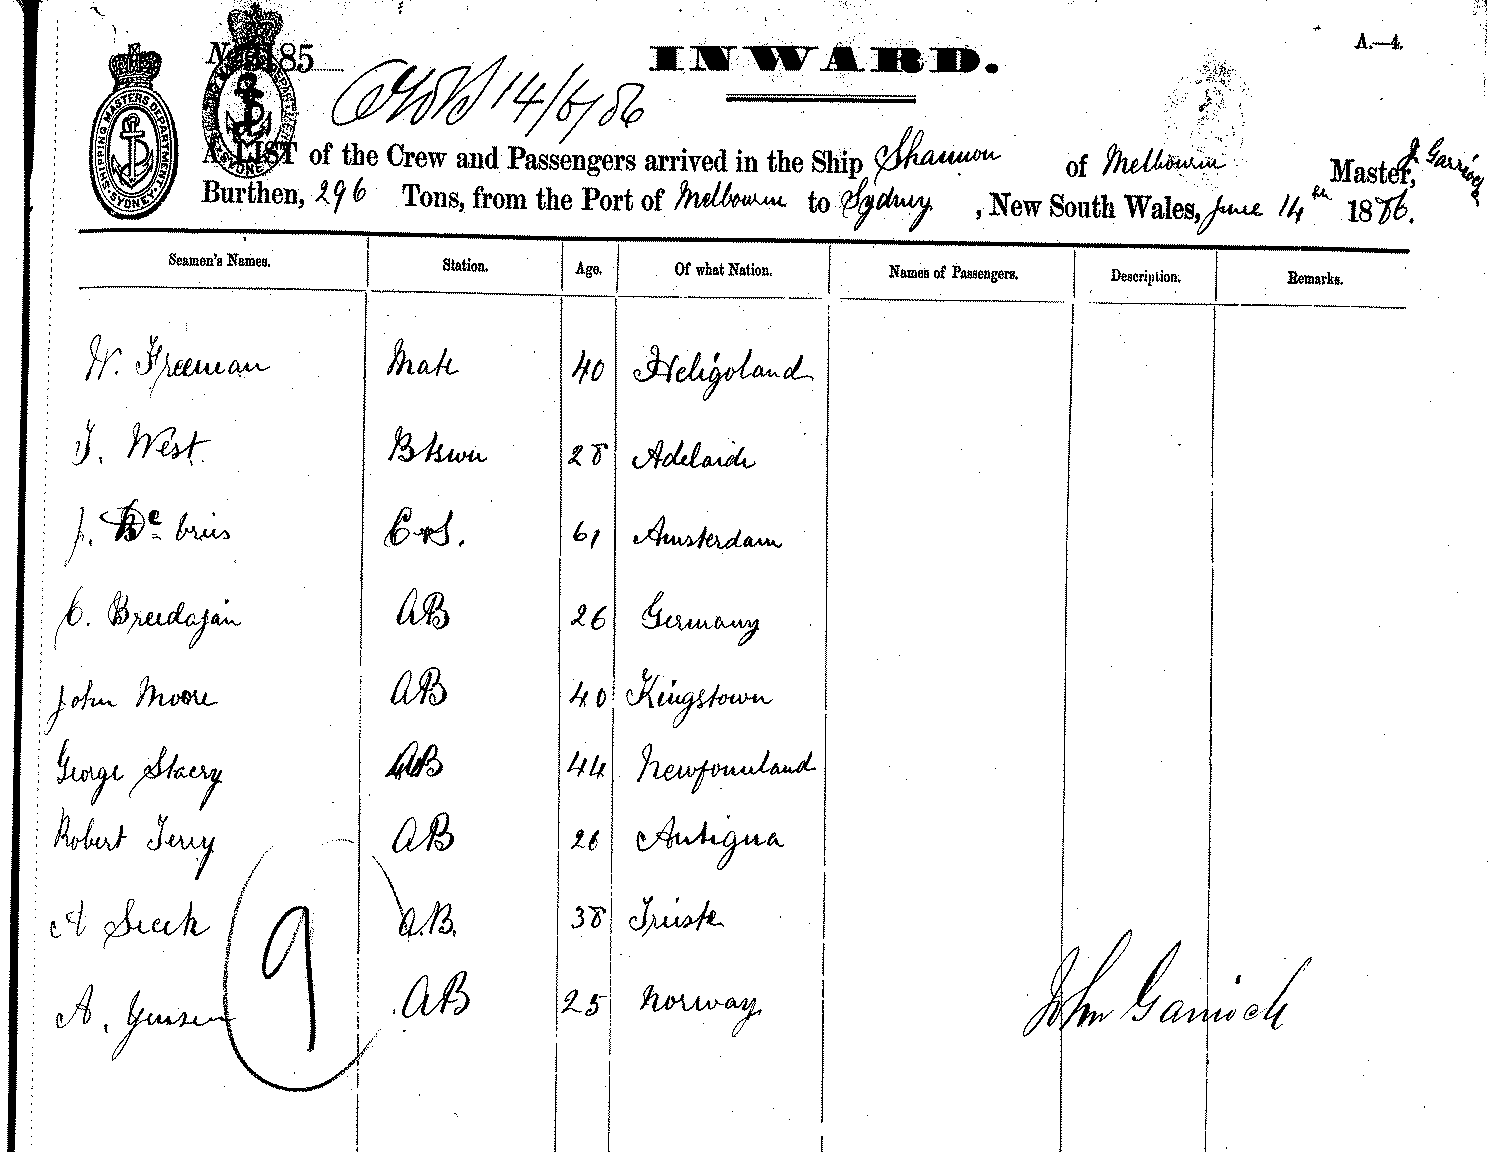 INWARD.
A.—4.
14/6/86
A LIST of the Crew and Passengers arrived in the Ship Shannon of Melbourne Master, J Garrioch
Burthen, 296 Tons, from the Port of Melbourne to Sydney, New South Wales, June 14th 1886.
SHIPPING MASTERS DEPARTMENT SYDNEY
Seamen's Names. Station. Age. Of what Nation. Names of Passengers. Description. Remarks.
W. Freeman Mate 40 Heligoland
J. West Btswn 28 Adelaide
J. De bries C & S. 61 Amsterdam
C. Breedajan AB 26 Germany
John Moore AB 40 Kingstown
George Stacey AB 44 Newfoundland
Robert Terry AB 26 Antigua
A Sieck A.B. 38 Trieste
A. Jensen AB 25 Norway
9
John Garrioch